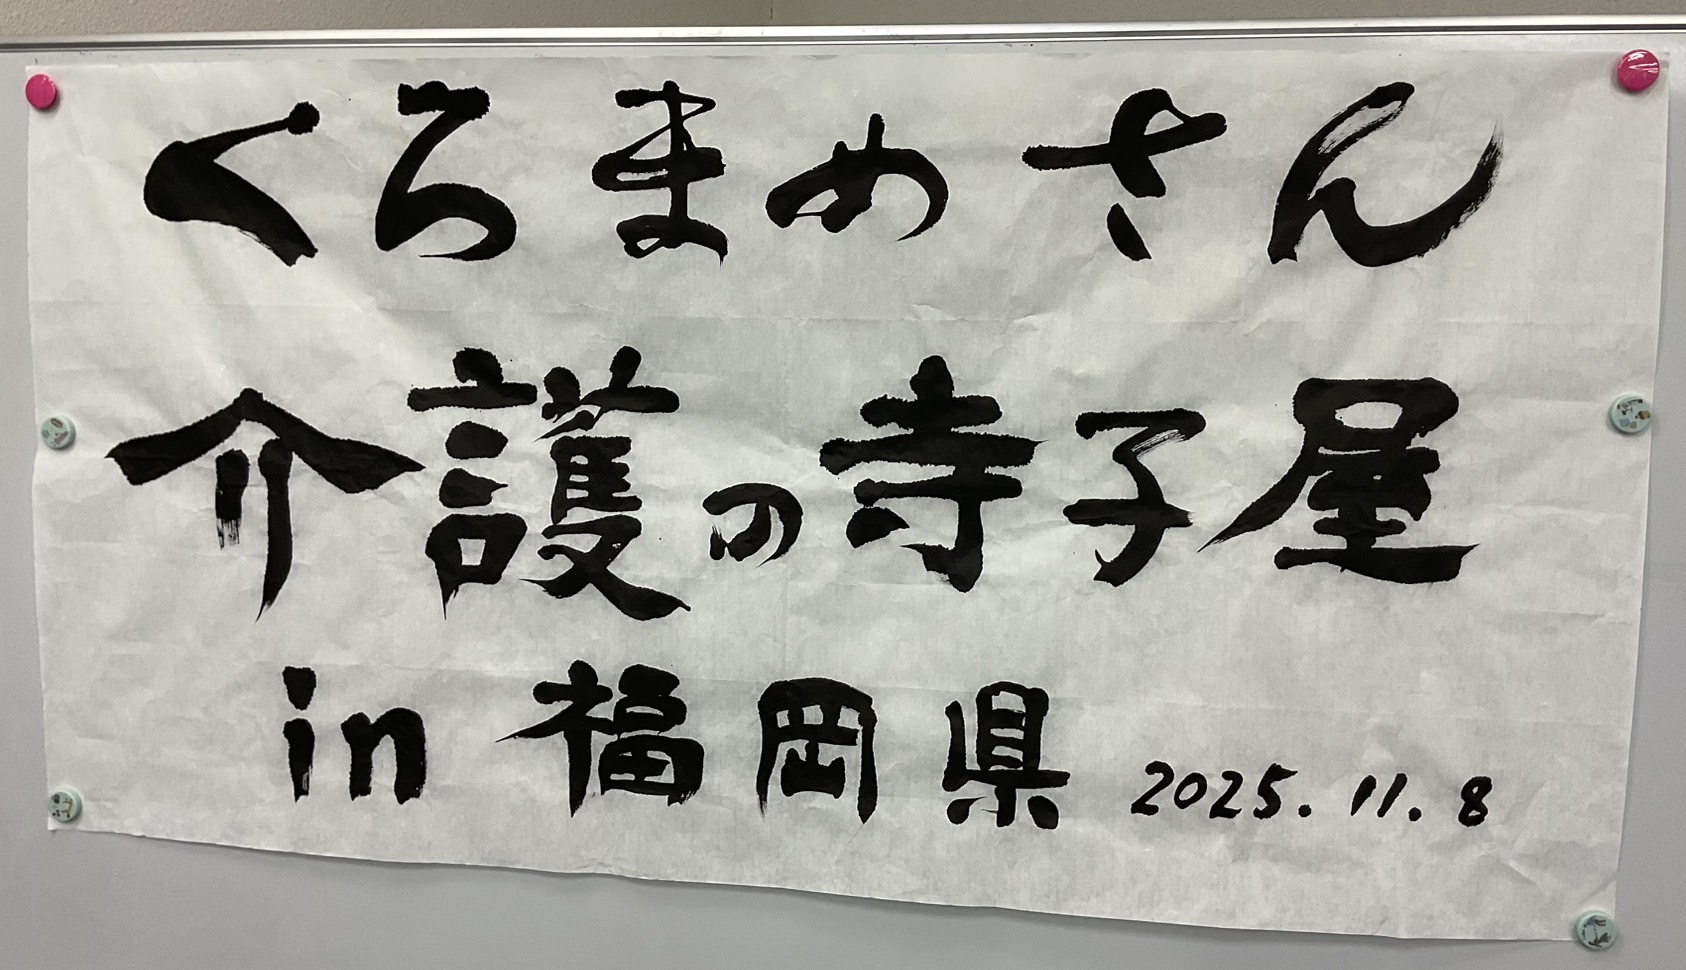 くろまめさん
介護の寺子屋
in 福岡県 2025.11.8